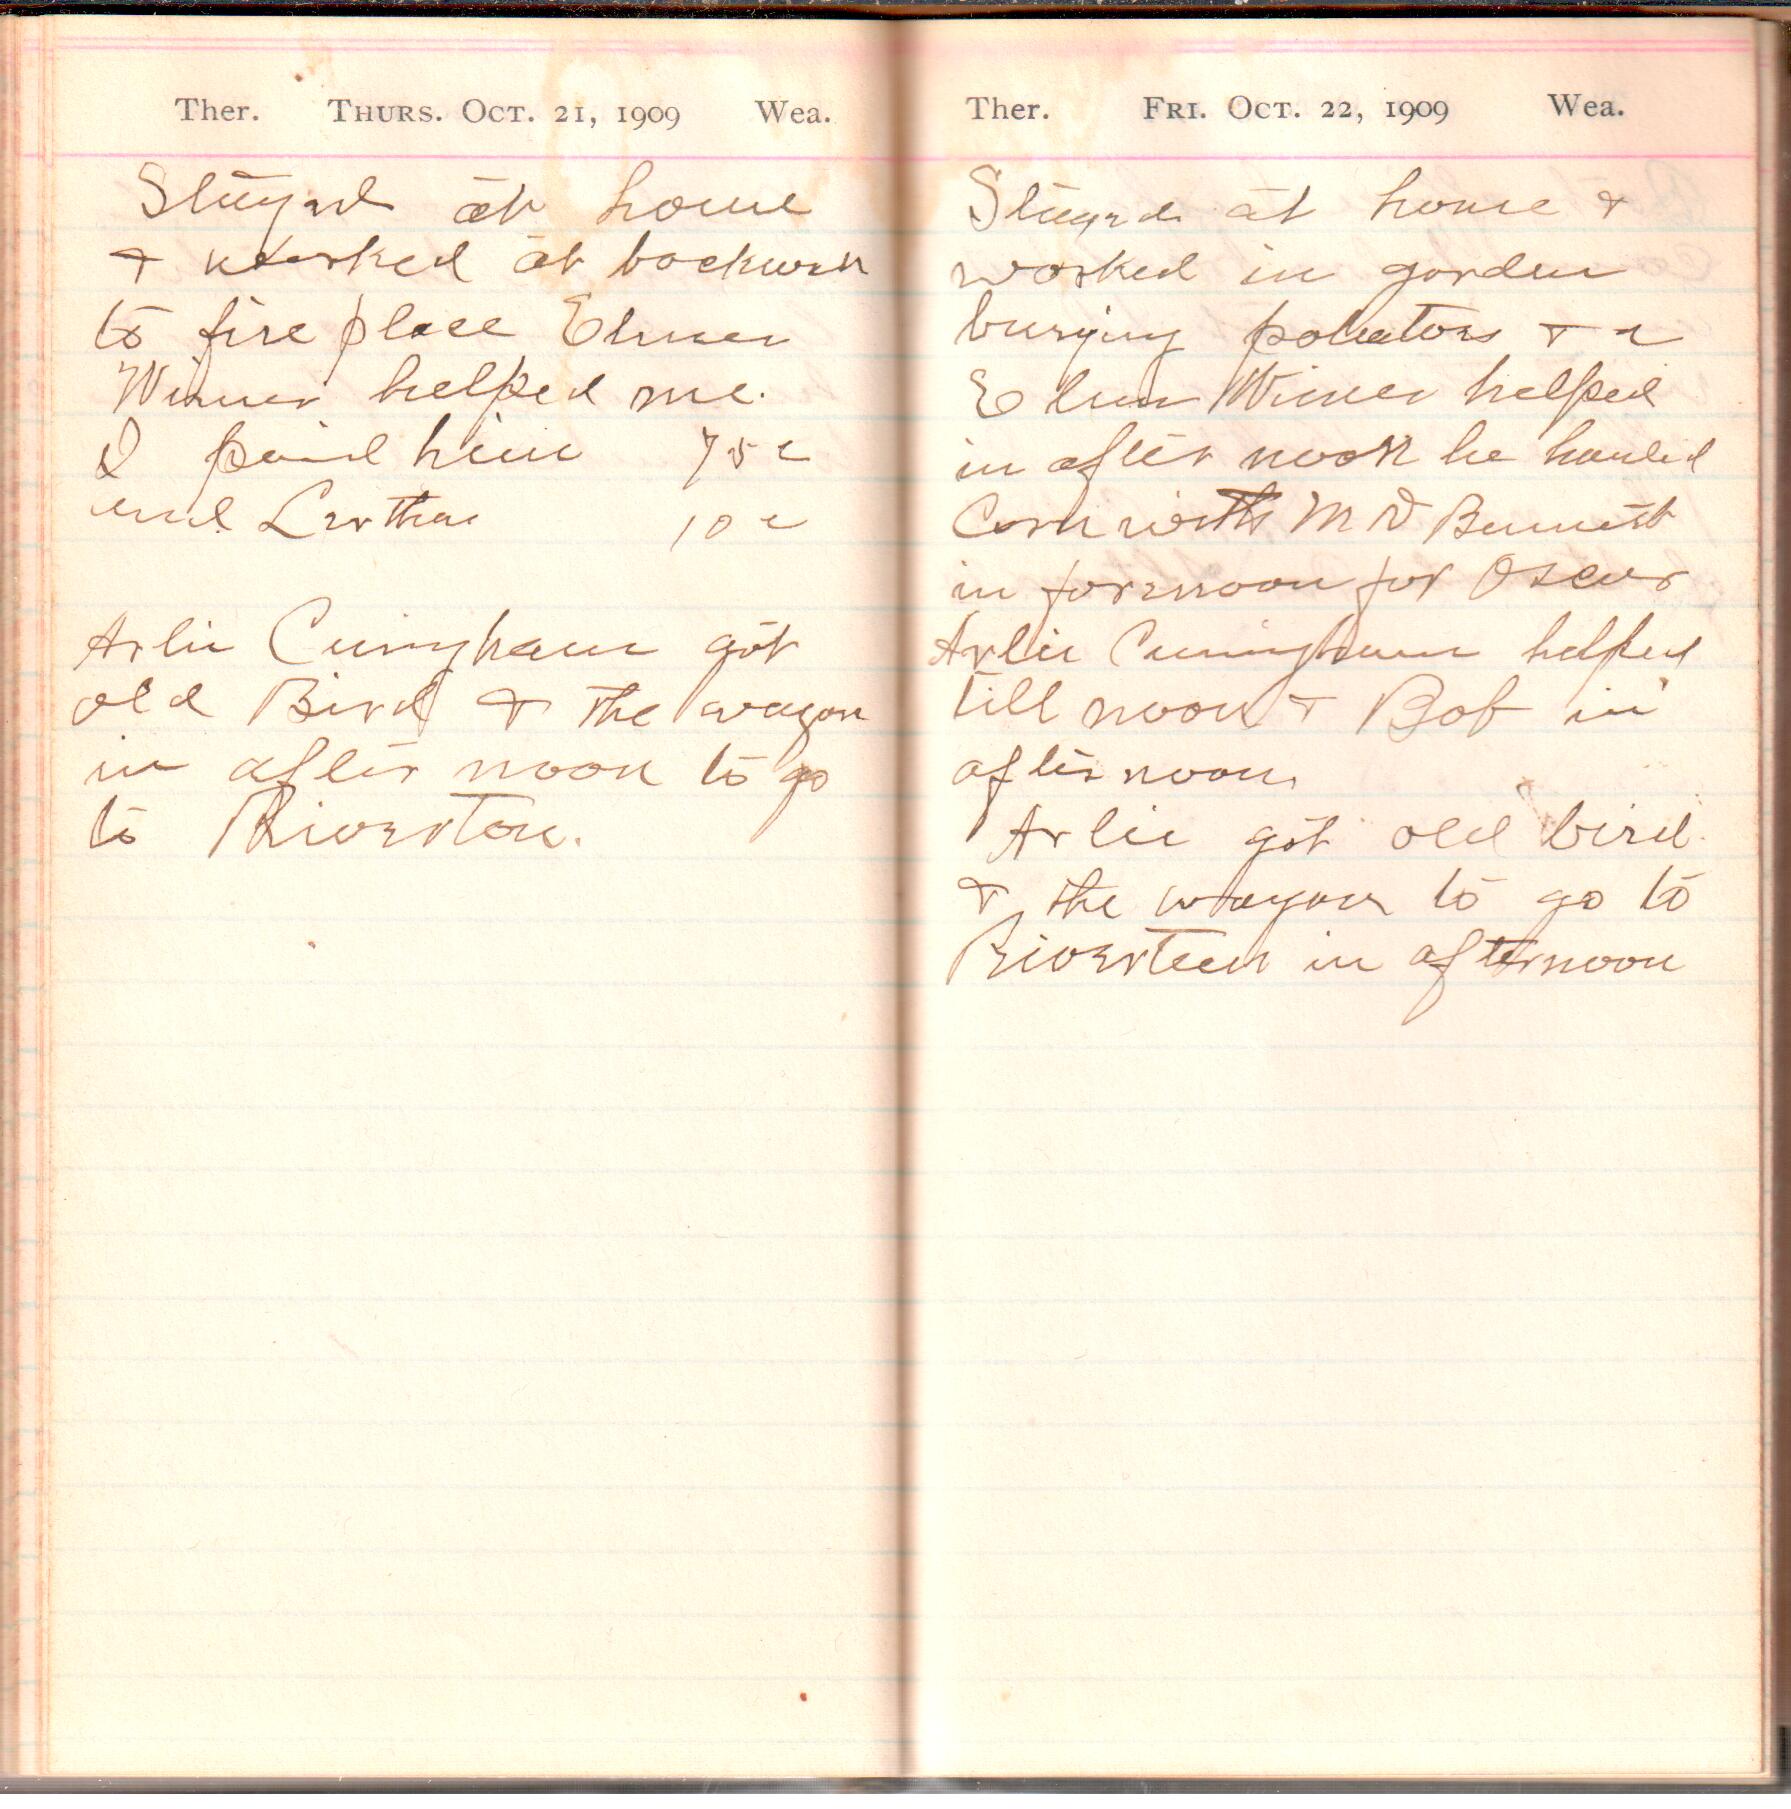 Ther. Thurs. Oct. 21, 1909 Wea.
Stayed at home
+ worked at
to fire place Elmer
Winer helped me.
I paid him 75 c
and Luther 10 c
Arlie Cuningham got
old Bird + the wagon
in after noon to go
to Riverton.
Ther. Fri. Oct. 22, 1909 Wea.
Stayed at home +
worked in garden
burying potatoes + c
Elmer Winer helped
in after noon he hauled
Corn with M D Bennett
in forenoon for Oscar
Arlie Cuningham helped
till noon + Bob in
afternoon
Arlie got old bird
+ the wagon to go to
Riverton in afternoon